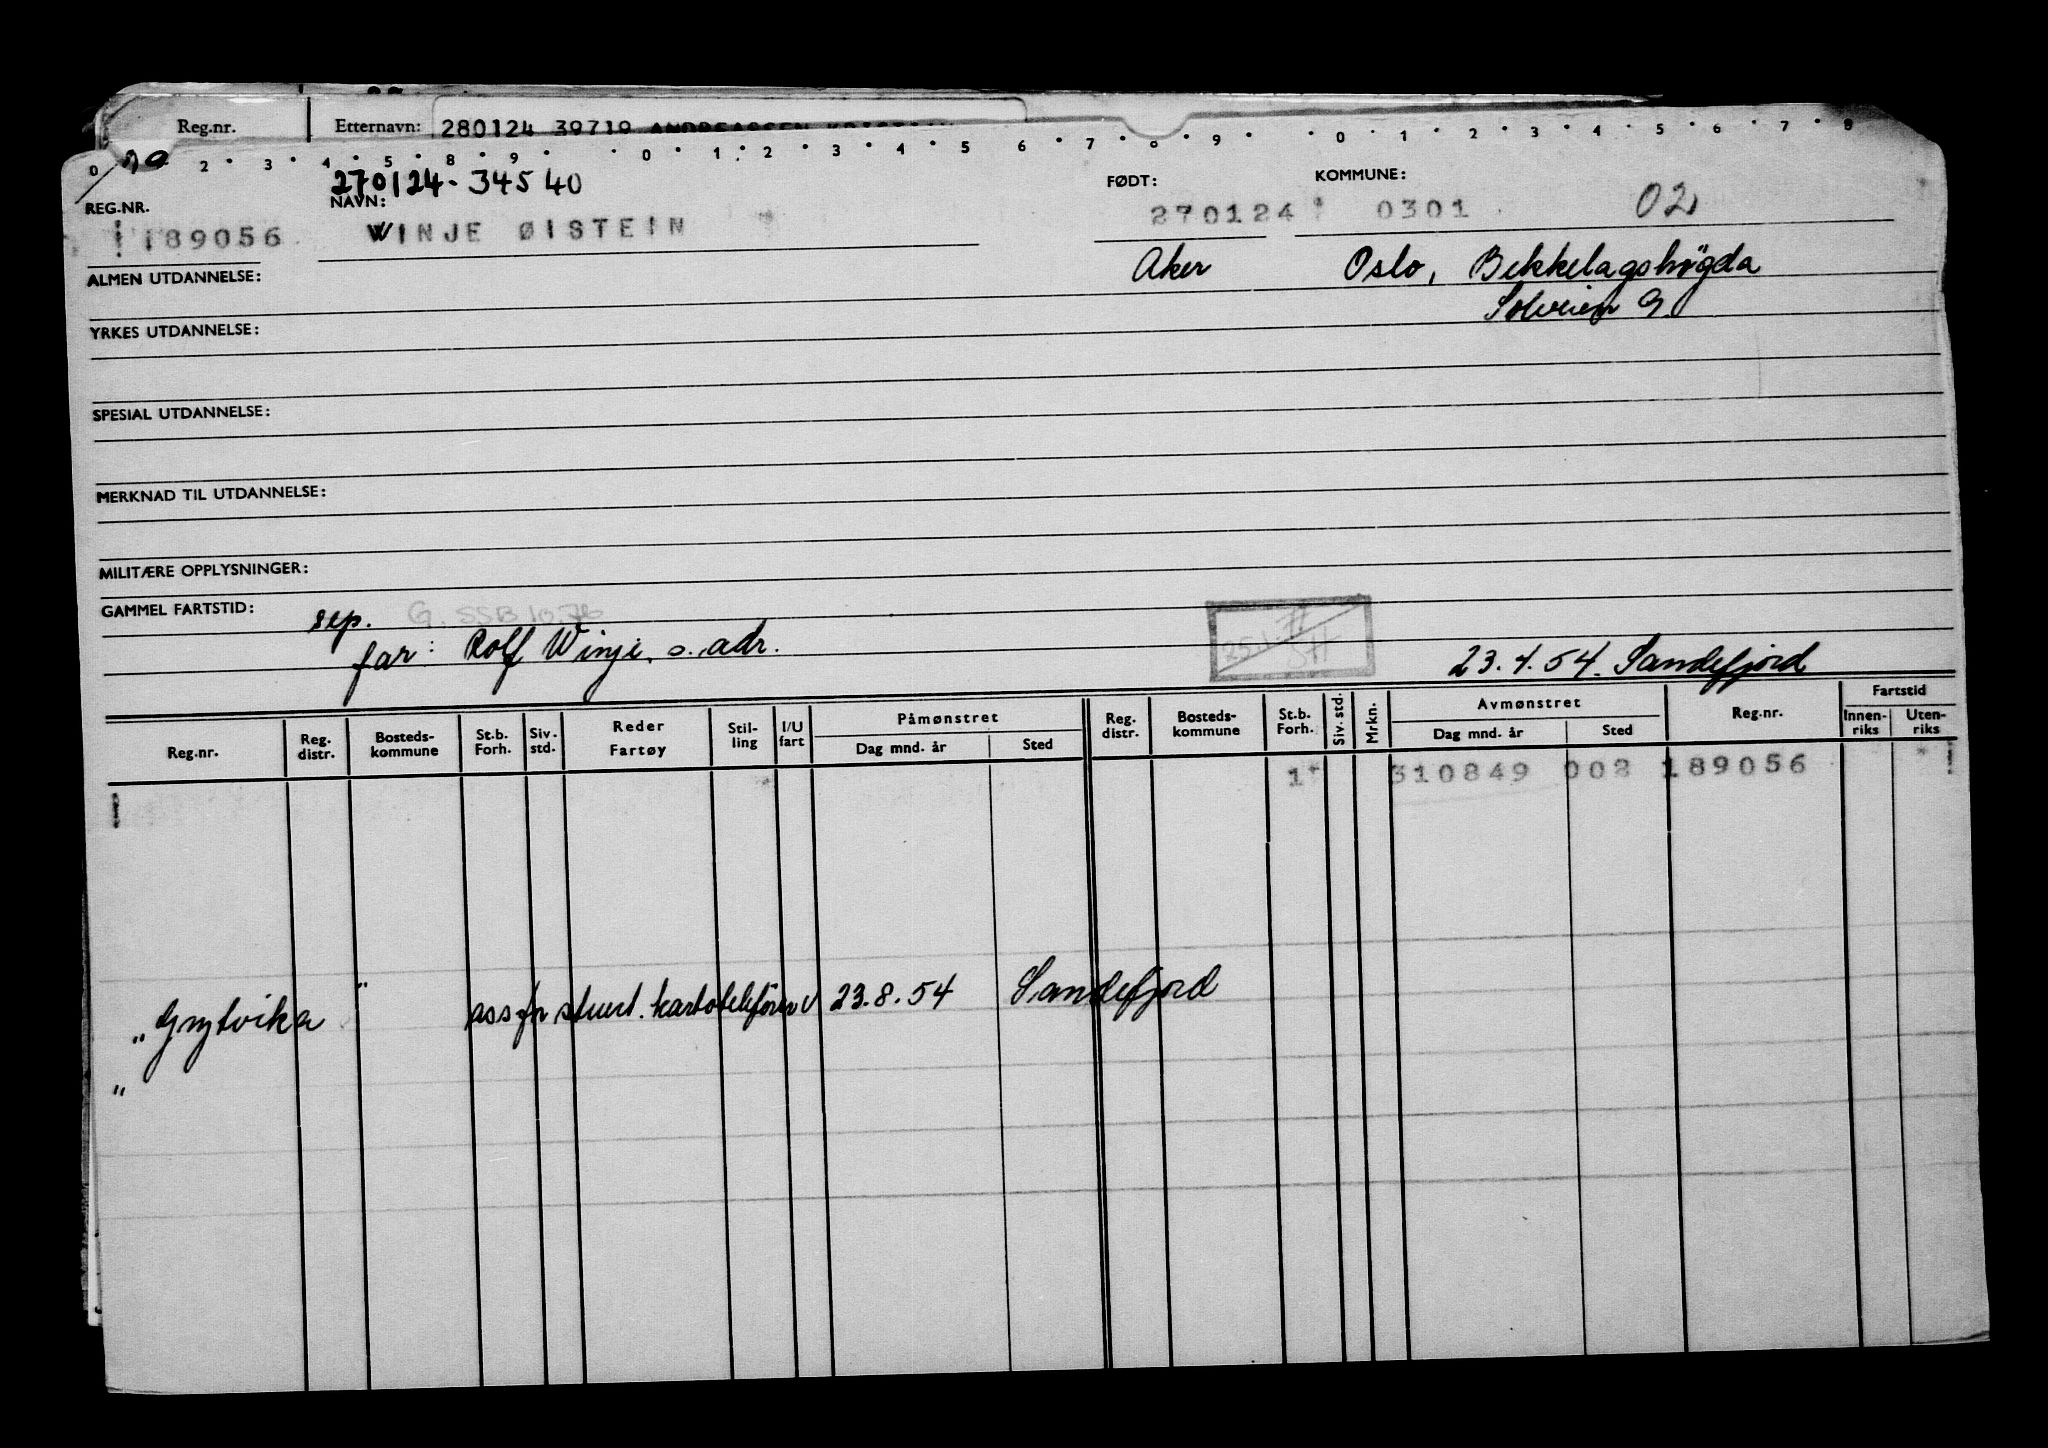 Reg.nr. Etternavn: 280124 39719 ANDREASSEN
0 2 3 4 5 8 9 0 1 2 3 4 5 6 7 8 9 0 1 2 3 4 5 6 7 8
270124-34540
REG.NR. NAVN: FØDT: KOMMUNE:
189056 WINJE ØISTEIN 270124 0301 02
Aker Oslo, Bekkelagshøgda
Solveien 9
ALMEN UTDANNELSE:
YRKES UTDANNELSE:
SPESIAL UTDANNELSE:
MERKNAD TIL UTDANNELSE:
MILITÆRE OPPLYSNINGER:
GAMMEL FARTSTID:
sep. G. SSB 10.76
far: Rolf Winje, s. adr. 23.4.54. Sandefjord
Reg.nr. Reg. distr. Bosteds-kommune St.b. Forh. Siv. std. Reder Fartøy Stil-ling I/U fart Påmønstret Dag mnd. år Sted Reg. distr. Bosteds-kommune St.b. Forh. Siv. std. Mrkn. Avmønstret Dag mnd. år Sted Reg.nr. Fartstid Innen-riks Uten-riks
1 310849 002 189056
" Grytvika " ass for stuert. 23.8.54 Sandefjord
"